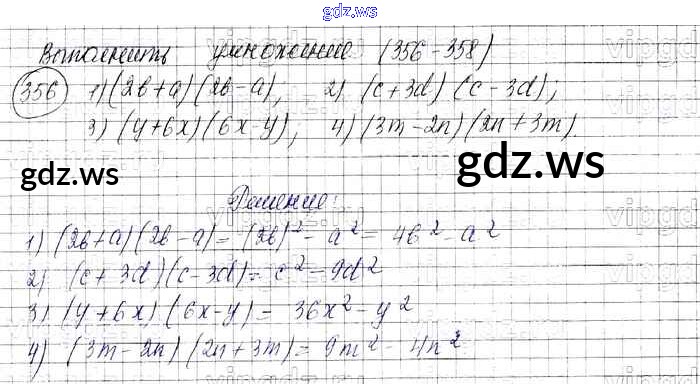 gdz.ws
Выполнить умножение (356-358)
356 1) (2b+a)(2b-a), 2) (c+3d)(c-3d);
3) (y+6x)(6x-y), 4) (3m-2n)(2n+3m).
gdz.ws gdz.ws
Решение:
1) (2b+a)(2b-a)=(2b)²-a²=4b²-a²
2) (c+3d)(c-3d)=c²-9d²
3) (y+6x)(6x-y)=36x²-y²
4) (3m-2n)(2n+3m)=9m²-4n²
gdz.ws